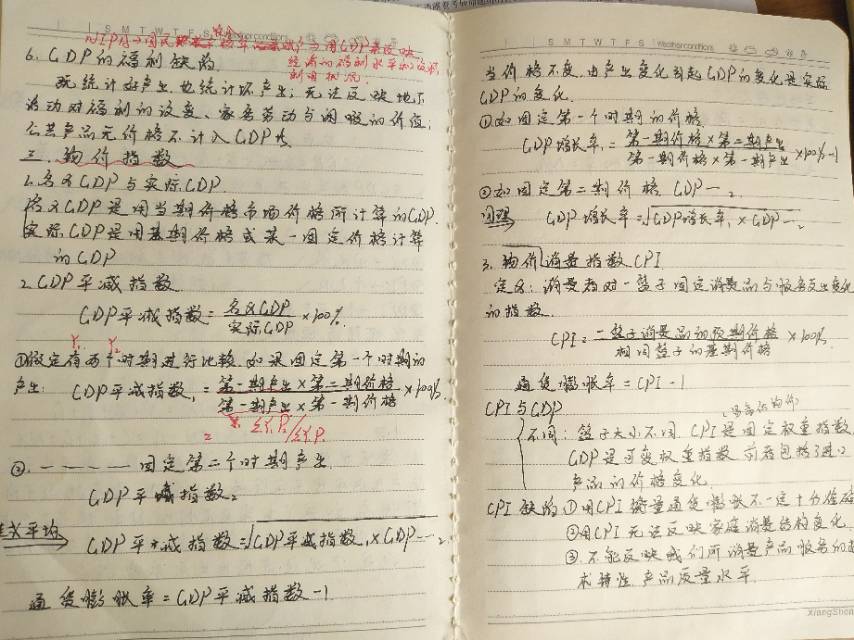 S M T W T F S
6. GDP的福利缺陷
既统计好产出也统计坏产出；无法反映地下
活动对福利的改变、家务劳动与闲暇的价值；
公共产品无价格不计入GDP中
三、物价指数
1.名义GDP与实际GDP.
名义GDP是用当期价格市场价格所计算的GDP.
实际GDP是用基期价格或某一固定价格计算
的GDP
2.GDP平减指数
GDP平减指数=名义GDP/实际GDP×100%.
Y₁ Y₂
①假定有两个时期进行比较.如果固定第一个时期的
产出: GDP平减指数₁=第一期产出×第二期价格/第一期产出×第一期价格×100%.
②. ———— 固定第二个时期产出
GDP平减指数₂
GDP平减指数=√GDP平减指数₁×GDP—₂
通货膨胀率=GDP平减指数-1
S M T W T F S Weather conditions
当价格不变.由产出变化引起GDP的变化是实际
GDP的变化.
①如固定第一个时期的价格
GDP增长率₁=第一期价格×第二期产出/第一期价格×第一期产出×100%-1
②如固定第二期价格 GDP—₂
同理 GDP增长率=√GDP增长率₁×GDP—₂
3. 物价消费指数CPI
定义: 消费者对一篮子固定消费品与服务支出变化
的指数.
CPI=一篮子消费品的现期价格/相同篮子的基期价格×100%
通货膨胀率=CPI-1
CPI与GDP
不同: 篮子大小不同. CPI是固定权重指数.
GDP是可变权重指数 前者包括了进口
产品的价格变化.
CPI缺陷①用CPI衡量通货膨胀不一定十分准确
②用CPI无法反映家庭消费结构变化.
③.不能反映我们所消费产品服务的技
术特性.产品质量水平.